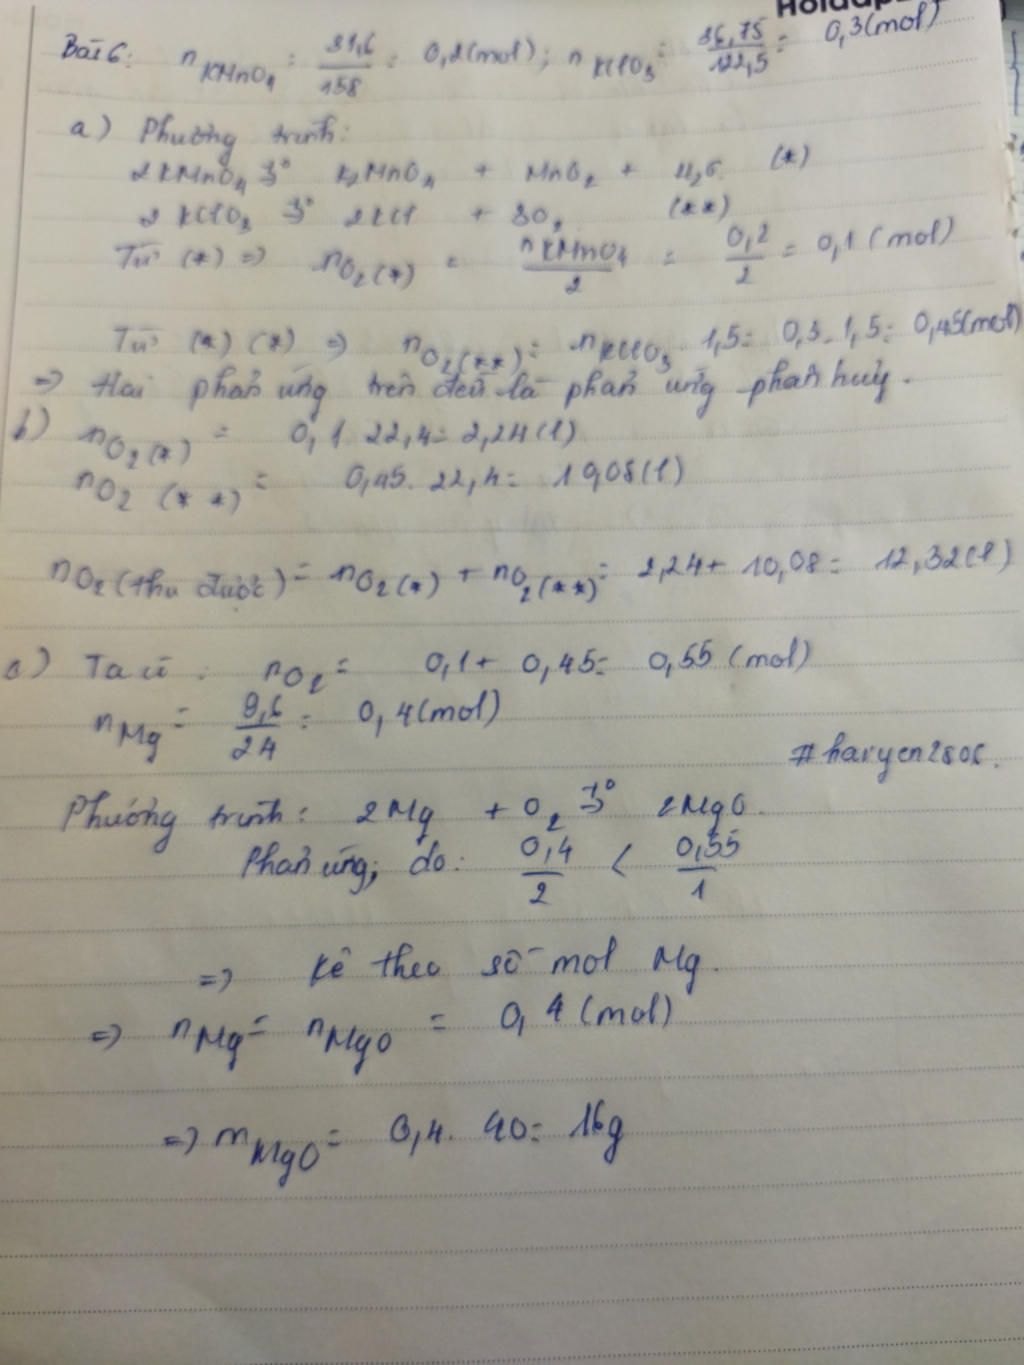 Holdap
Bài 6: nKMnO4 = 31,6/158 = 0,2(mol); nKClO3 = 36,75/122,5 = 0,3(mol)
a) Phương trình:
2KMnO4 t° K2MnO4 + MnO2 + (*)
2KClO3 t° 2KCl + 3O2 (**)
Từ (*) => nO2(*) = nKMnO4/2 = 0,2/2 = 0,1(mol)
Từ (*)(*) => nO2(**) = nKClO3 . 1,5 = 0,3 . 1,5 = 0,45(mol)
=> Hai phản ứng trên đều là phản ứng phân huỷ.
b) nO2(*) = 0,1 . 22,4 = 2,24(l)
nO2(**) = 0,45 . 22,4 = 10,08(l)
nO2(thu được) = nO2(*) + nO2(**) = 2,24 + 10,08 = 12,32(l)
c) Ta có: nO2 = 0,1 + 0,45 = 0,55 (mol)
nMg = 9,6/24 = 0,4(mol)
#haryen2806.
Phương trình: 2Mg + O2 t° 2MgO.
Phản ứng; do: 0,4/2 < 0,55/1
=> Kê theo số mol Mg.
=> nMg = nMgO = 0,4(mol)
=> mMgO = 0,4 . 40 = 16g